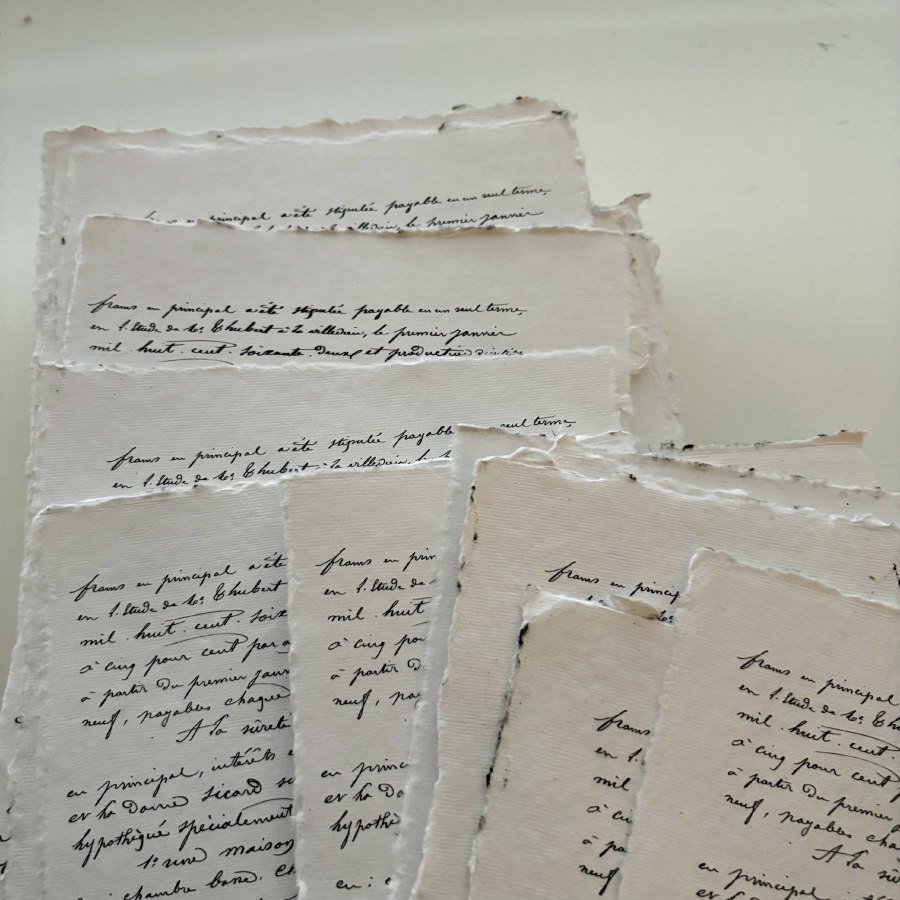 en principal a été stipulée payable en un seul terme,
le premier janvier
frams en principal a été stipulée payable en un seul terme,
en l'Etude de Me Chubert à la villedieu, le premier janvier
mil huit cent soixante deux et productive
frams en principal a été stipulée payable seul terme,
en l'Etude de Me Chubert à la villedieu, le
frams en principal a été
en l'Etude de Me Chubert
mil huit cent soix
à cinq pour cent par a
à partir du premier janv
neuf, payables chaque
A la sûreté
en principal, intérêts e
et la Dame Sicard s
hypothèqué spécialement
1º une maison
chambre basse. c
frams en prin
en l'Etude de
mil huit
à cinq po
à partir D
neuf, pay
en princ
et la Da
hypothè
en
frams en princip
frams
en l'
mil
à ci
à pa
neuf
frams en principal
en l'Etude de Me Ch
mil huit cent
à cinq pour cent p
à partir du premier
neuf, payables cha
A la sû
en principal,
et la Dame